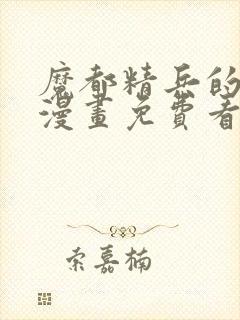 魔都精兵的
漫畫免費看
索嘉楠